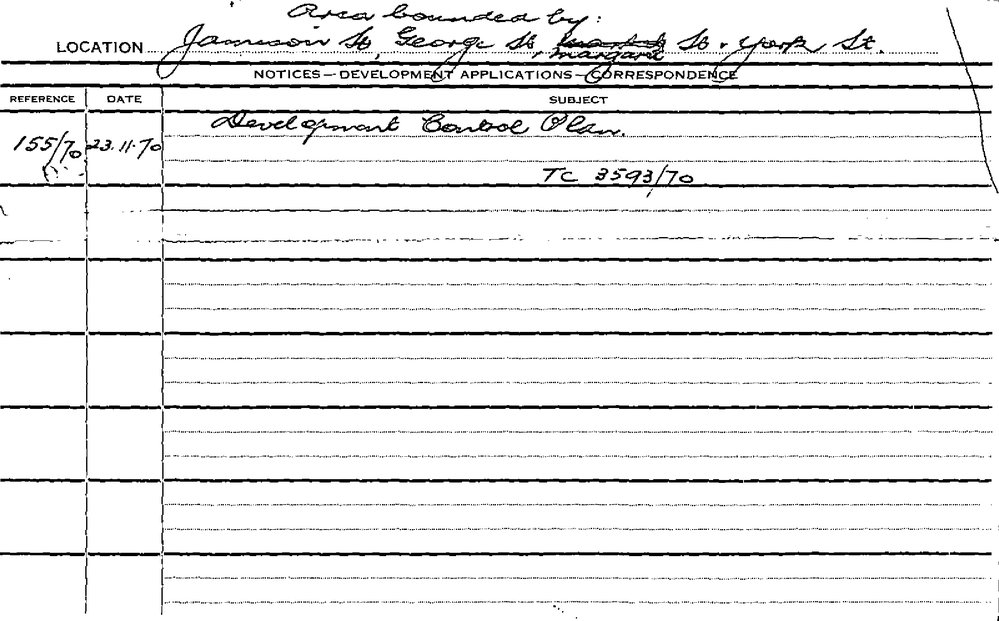 Area bounded by:
LOCATION Jamison St, George St, Margaret St. York St.
NOTICES — DEVELOPMENT APPLICATIONS — CORRESPONDENCE
REFERENCE DATE SUBJECT
Development Control Plan.
155/70 23.11.70
TC 3593/70